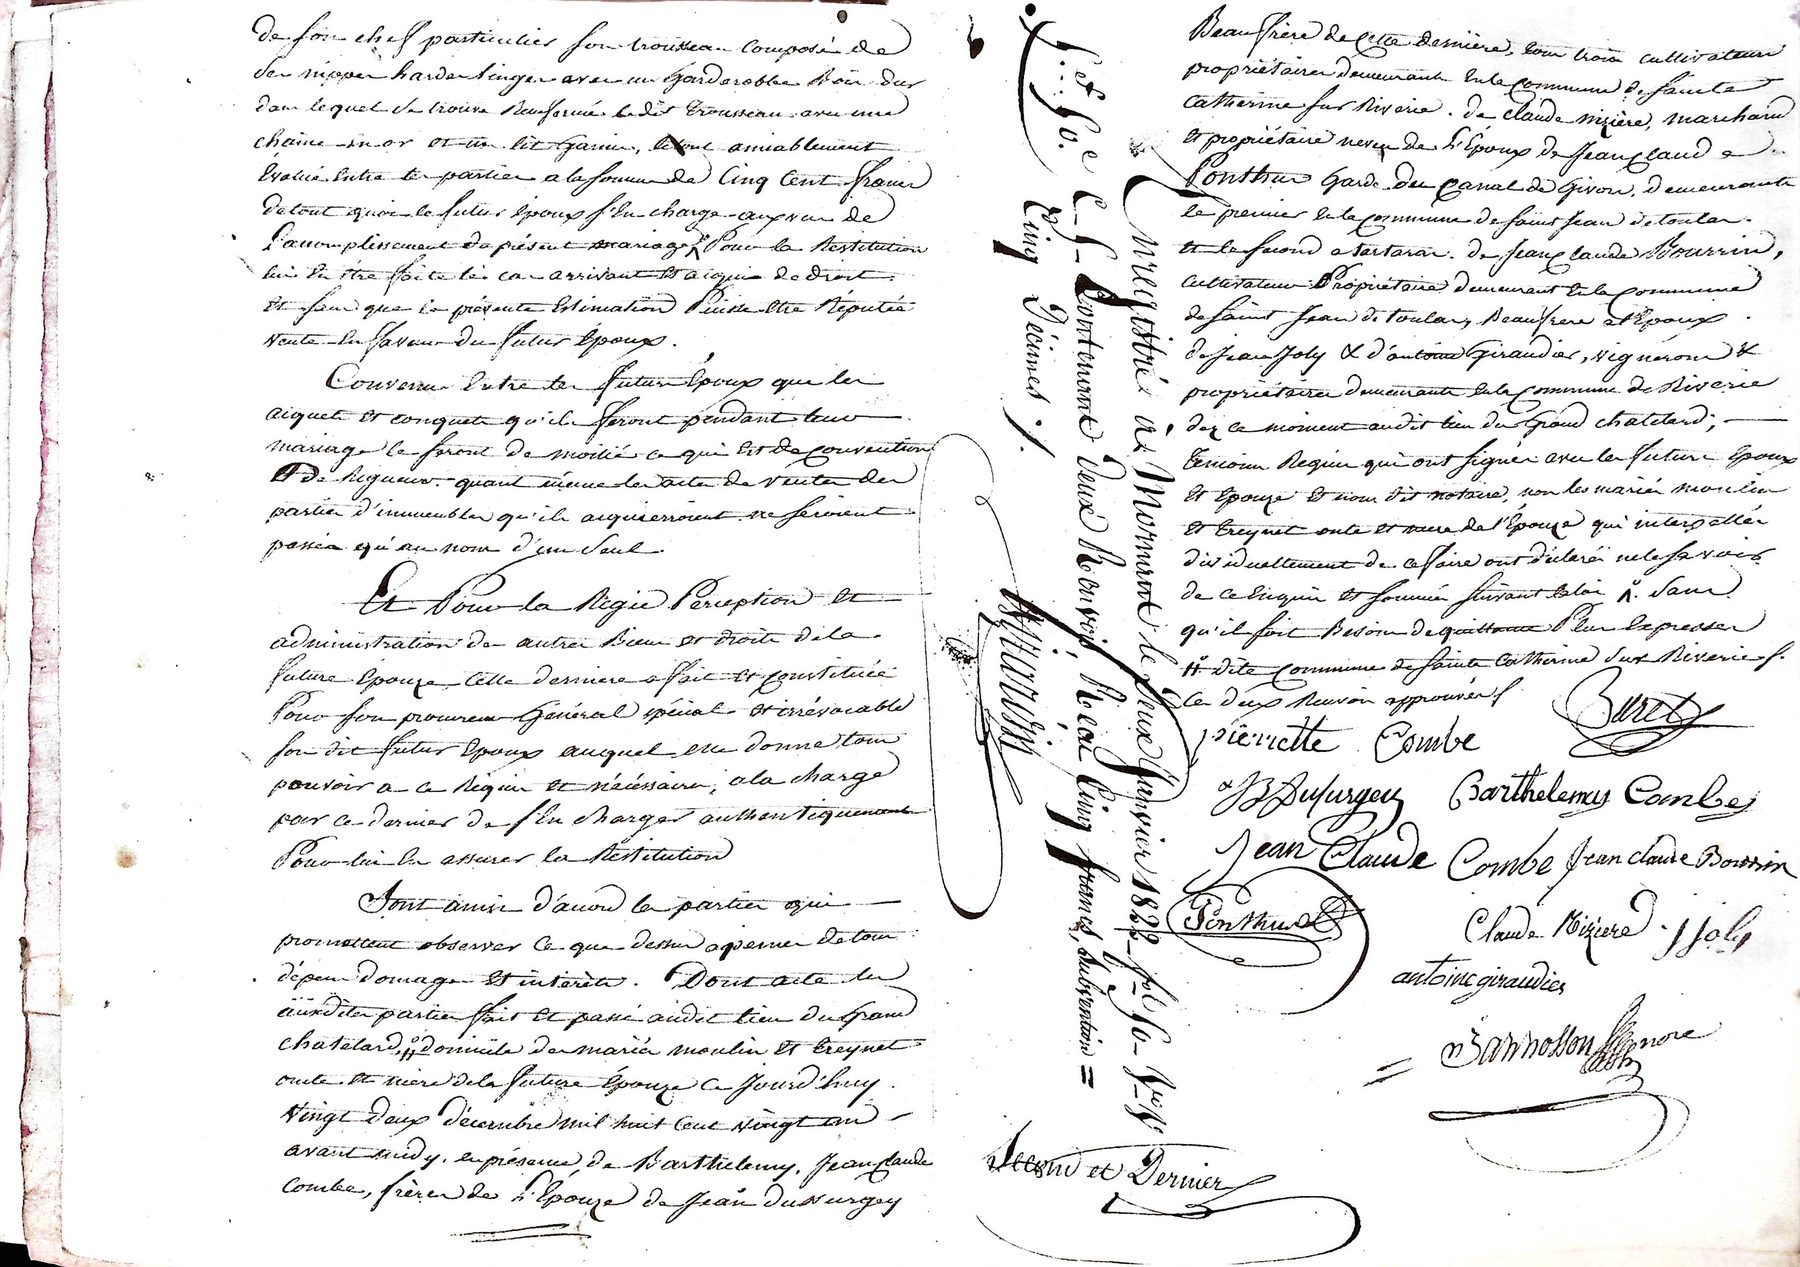 de son chef particulier son trousseau composé de
Ses nippes hardes linges avec un Garderobbe Bois dur
dans lequel se trouve Renfermé ledit Trousseau avec une
chaine en or et un lit Garni, le tout amiablement
Evalué Entre les parties a la somme de Cinq Cent francs
de tout quoi le futur époux s'En charge aux vu de
l'accomplissement du présent mariage Pour la Restitution
lui En être faite le cas arrivant Et acquis de droit
Et sans que la présente Estimation Puisse Etre Réputée
vente En faveur du futur Epoux.
Convenu Entre les futurs Epoux que les
aiquets et conquets qu'ils feront pendant leur
mariage le seront de moitié ce qui Est de convention
Et de Rigueur. quant même les actes de ventes des
parties d'immeubles qu'ils acquierroient ne seroient
passés qu'au nom d'un Seul.
Et Pour la Régie Perception et
administration des autres Biens et droits de la
future Epouze Cette derniere a fait et constitué
Pour son procureur Général spécial et irrévocable
son dit futur Epoux auquel elle donne tous
pouvoirs a ce Réquis et nécéssaires, a la charge
par ce dernier de s'En charger authentiquement
Pour lui En assurer la Restitution
Sont ainsi d'accord les parties qui
promettent observer ce que dessus a peines de tous
dépens domages Et interets. Dont acte les
susdites parties fait Et passé audit lieu du Grand
chatelard, domicile des mariés moulin Et Treynet
oncle Et mere de la future Epouze Ce Jourd'huy
vingt deux décembre mil huit cent vingt un
avant midy. en présence, de Barthelemy, Jean Claude
Combe, frères de l'Epouze de Jean dussurgey
S. et 50. c
Cinq Décimes ./.
Enregistré à Mornant le Deux Janvier 1822 fol. 50 V°
Contenant Deux Renvois Reçu Cinq francs, Subvention =
Second et Dernier
Beau frère de Cette dernière, tous trois cultivateurs
propriétaires demeurants En la Commune de Sainte
Catherine sur Riverie. de Claude mizière, marchand
Et propriétaire neveu de l'Epoux de Jean Claude
Ponthus Garde du Canal de Givors, demeurants
le premier En la Commune de Saint Jean de toulas
Et le Second a tartaras. de Jean Claude Bourrin,
Cultivateur Propriétaire demeurant En la Commune
de Saint Jean de toulas, Beaufrere a l'Epoux.
de Jean Joly & d'antoine Giraudier, vignerons &
propriétaires demeurants En la Commune de Riverie
dez ce moment audit lieu du Grand chatelard;
Temoins Requis qui ont Signés avec les futurs Epoux
Et Epouze Et nous dit notaire, non les mariés moulin
Et Treynet oncle et mere de l'Epouze qui interpellés
dividuellement de ce faire ont déclaré ne le savoir
de ce Enquis Et sommés suivant la loi. Sans
qu'il soit Besoin de quittance Plus Expresse
dite Commune de Sainte Catherine Sur Riverie
Ces deux Renvois approuvés
Buret
pierrette Combe
JB Dusurgey Barthelemy Combe
Jean Claude Combe Jean claude Bourrin
Ponthus Claude Miziere J joly
antoine giraudier
Bannosson